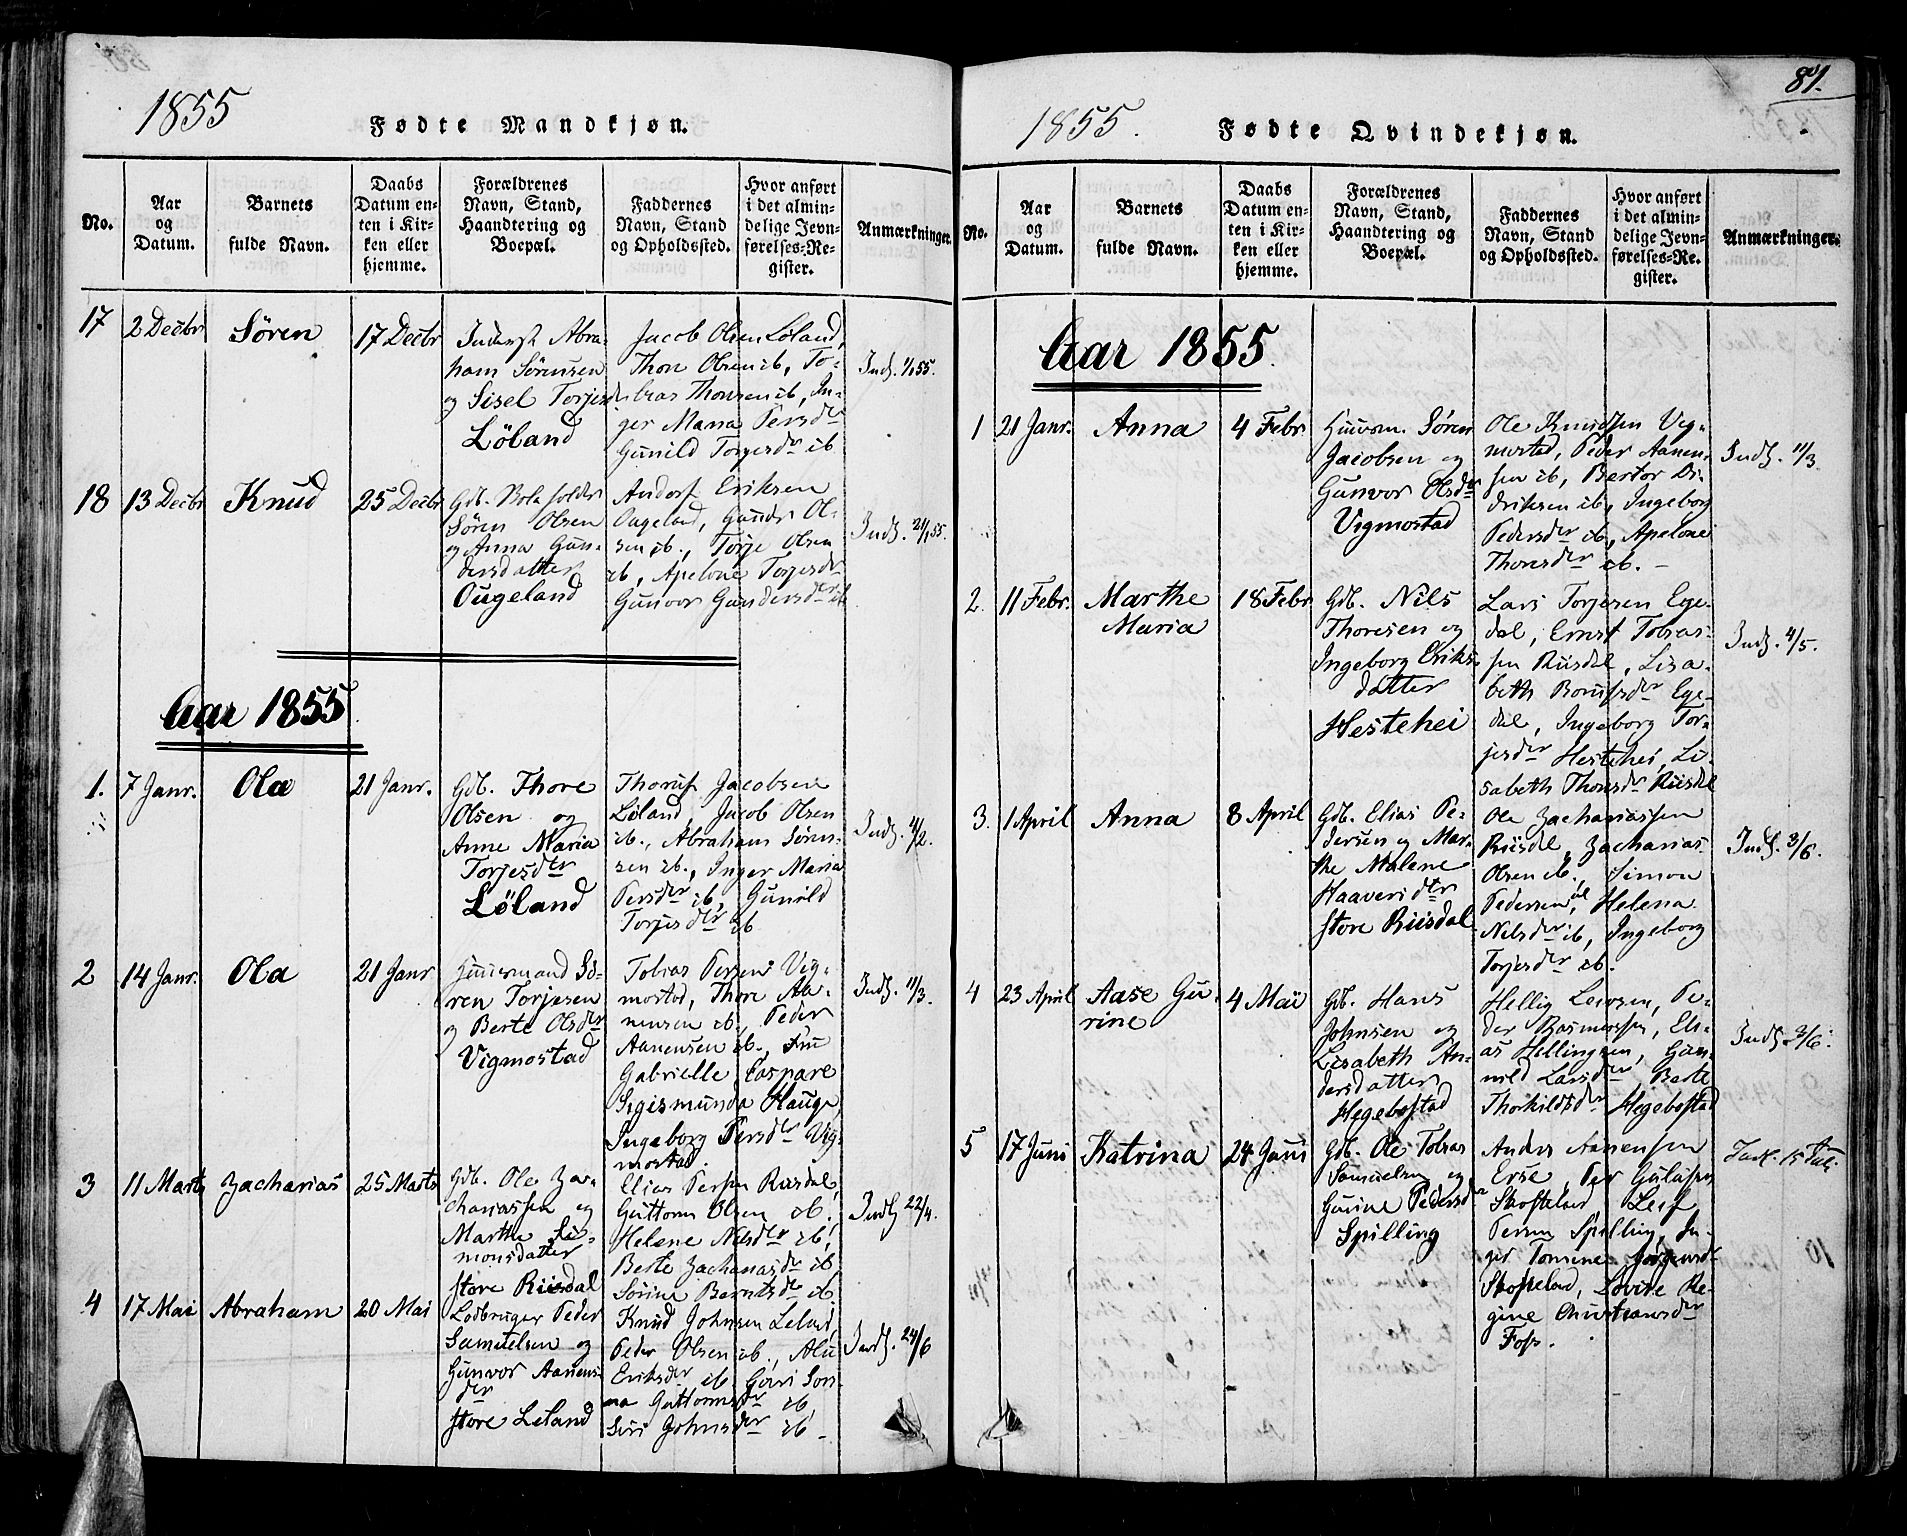 1855
Fødte Mandkjøn.
No.
Aar
og
Datum.
Barnets
fulde Navn.
Daabs
Datum en-
ten i Kir-
ken eller
hjemme.
Forældrenes
Navn, Stand,
Haandtering og
Boepæl.
Faddernes
Navn, Stand
og Opholdssted.
Hvor anført
i det almin-
delige Jevn-
førelses-Re-
gister.
Anmærkninger.
17
2 Decbr
Søren
17 Decbr
Inderst Abra-
ham Sørensen
og Sisel Torjesdr
Løland
Jacob Olsen Løland,
Thore Olsen ib, To-
bias Thoresen ib, In-
ger Maria Persdr
Gunild Torjesdr ib
Indf. 1/1 55.
18
13 Decbr
Knud
25 Decbr
Gdb.
Søren Olsen
og Anna Gun-
dersdatter
Ougeland
Eriksen
Ougeland, Ol-
sen ib., Torje Olsen
ib, Apelone Torjesdr
Gunvor Gundersdr ib
Indf. 21/1 55.
Aar 1855
1.
7 Janr.
Ola
21 Janr.
Gdb. Thore
Olsen og
Anne Maria
Torjesdr
Løland
Jacobsen
Løland, Jacob Olsen
ib., Abraham Søren-
sen ib., Inger Maria
Persdr ib, Gunild
Torjesdr ib
Indf. 4/2.
2
14 Janr.
Ola
21 Janr
Huusmand Sø-
ren Torjesen
og Berte Olsdr
Vigmostad
Tobias Persen Vig-
mostad, Thore Aa-
nensen ib, Peder
Aanensen ib., Fru
Gabrielle Caspare
Sigismunda Hauge,
Ingeborg Persdr Vig-
mostad.
Indf. 11/3.
3
11 Marts
Zacharias
25 Marts
Gdb. Ole Za-
chariassen og
Marthe Si-
monsdatter
Store Riisdal
Elias Persen Riisdal,
Guttorm Olsen ib.,
Helene Nilsdr ib,
Berte Zachariasdr ib
Sørine Berntsdr ib
Indf 22/4.
4
17 Mai
Abraham
20 Mai
Lodbruger Peder
Samuelsen og
Gunvor Aanens-
dr
Store Leland
Knud Johnsen Leland,
Peder Olsen ib.,
Eriksdr ib,
Guttormsdr ib,
Siri Johnsdr ib
Indf. 24/6
81.
1855.
Fødte Qvindekjøn.
No.
Aar
og
Datum.
Barnets
fulde Navn.
Daabs
Datum en-
ten i Kir-
ken eller
hjemme.
Forældrenes
Navn, Stand,
Haandtering og
Boepæl.
Faddernes
Navn, Stand
og Opholdssted.
Hvor anført
i det almin-
delige Jevn-
førelses-Re-
gister.
Anmærkninger.
Aar 1855.
1
21 Janr.
Anna
4 Febr
Huusm. Søren
Jacobsen og
Gunvor Olsdr
Vigmostad
Ole Knudsen Vig-
mostad, Peder Aanen-
sen ib, Bertor Di-
driksen ib, Ingeborg
Pedersdr ib, Apelone
Thoresdr ib.
Indf. 11/3.
2.
11 Febr.
Marthe
Maria
18 Febr
Gdb. Nils
Thoresen og
Ingeborg Eriks-
datter
Hestehei
Lars Torjesen Ege-
dal, Ernst Tobias-
sen Riisdal, Lisa-
beth Ege-
dal, Ingeborg Tor-
jesdr Hestehei, Li-
sabeth Thoresdr Riisdal
Indf. 4/5.
3.
1 April
Anna
8 April
Gdb. Elias Pe-
dersen og Mar-
the Malene
Haaversdtr
Store Riisdal
Ole Zachariassen
Riisdal, Zacharias
Olsen ib., Simon
Pedersen, ib Helena
Nilsdr ib, Ingeborg
Torjesdr ib.
Indf. 3/6.
4
23 April
Aase Gu-
rine
4 Mai
Gdb. Hans
Johnsen og
Lisabeth An-
dersdatter
Hegebostad
Hellig Leivsen, Pe-
der Rasmussen, Eli-
as Hellingsen, Gun-
vild Larsdr Berte
Thorkildsdr Hegebostad
Indf. 3/6.
5
17 Juni
Katrina
24 Juni
Gdb. Ole Tobias
Samuelsen og
Gurine Pedersdr
Spilling
Anders Aanensen
Erse, Per
Skofteland, Leif
Persen Spilling, In-
ger Tomine
Skofteland, Lovise Re-
gine Christiansdr
Foss.
Indf. 15 Juli.